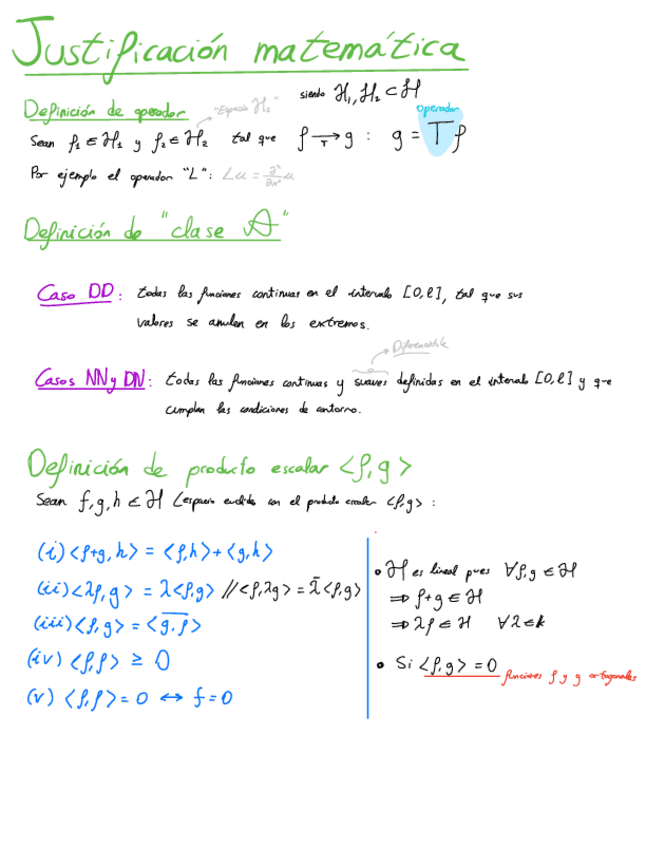 Justificación matemática
siendo ℋ₁, ℋ₂ ⊂ ℋ
Definición de operador
"Espacio ℋ₂"
operador
Sean f₁ ∈ ℋ₁ y f₂ ∈ ℋ₂ tal que f →_T g : g = T f
Por ejemplo el operador "L": Lu = ∂²/∂x² u
Definición de "clase A"
Caso DD: todas las funciones continuas en el intervalo [0,ℓ], tal que sus
valores se anulen en los extremos.
Diferenciable
Casos NN y DN: todas las funciones continuas y suaves definidas en el intervalo [0,ℓ] y que
cumplan las condiciones de contorno.
Definición de producto escalar <f,g>
Sean f,g,h ∈ ℋ (espacio euclídeo con el producto escalar <f,g> :
(i) <f+g,h> = <f,h> + <g,h>
(ii) <λf,g> = λ<f,g> // <f,λg> = λ̄<f,g>
(iii) <f,g> = <g,f>‾
(iv) <f,f> ≥ 0
(v) <f,f> = 0 ↔ f=0
• ℋ es lineal pues ∀f,g ∈ ℋ
⇒ f+g ∈ ℋ
⇒ λf ∈ ℋ ∀λ∈k
• Si <f,g> = 0
funciones f y g ortogonales